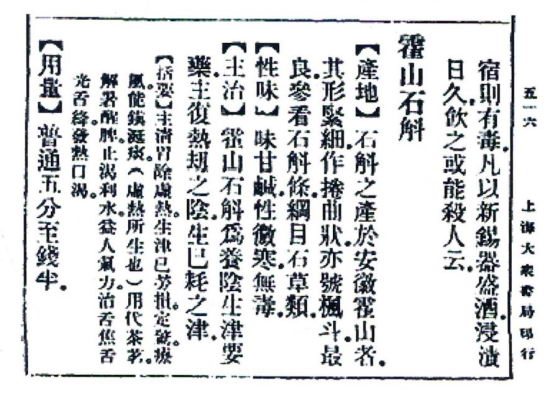 五一六
上海大衆書局印行
宿則有毒凡以新錫器盛酒浸漬
日久飲之或能殺人云
霍山石斛
【產地】石斛之產於安徽霍山者
其形緊細作捲曲狀亦號楓斗最
良參看石斛條綱目石草類
【性味】味甘鹹性微寒無毒
【主治】霍山石斛爲養陰生津要
藥主復熱刼之陰生已耗之津
【括要】主清胃除虛熱生津已勞損定驚療
風能鎮涎痰(虛熱所生也)用代茶茗
解暑醒脾止渴利水益人氣力治舌焦舌
光舌絳發熱口渴
【用量】普通五分至錢半